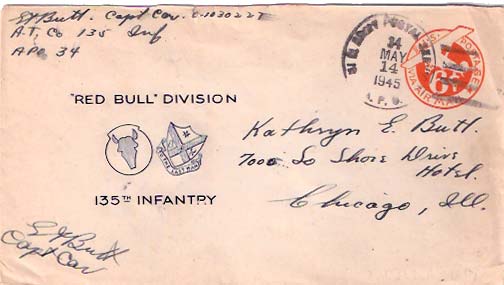 EJButt. Capt Cav. O-1030227
A.T. Co 135 Inf
APO 34
U.S. ARMY POSTAL SERVICE
34
MAY
14
1945
A.P.O.
U.S. POSTAGE
6¢
VIA AIR MAIL
"RED BULL" DIVISION
TO THE LAST MAN
135TH INFANTRY
Kathryn E. Butt.
7000 So Shore Drive
Hotel.
Chicago, Ill.
EJButt
Capt Cav